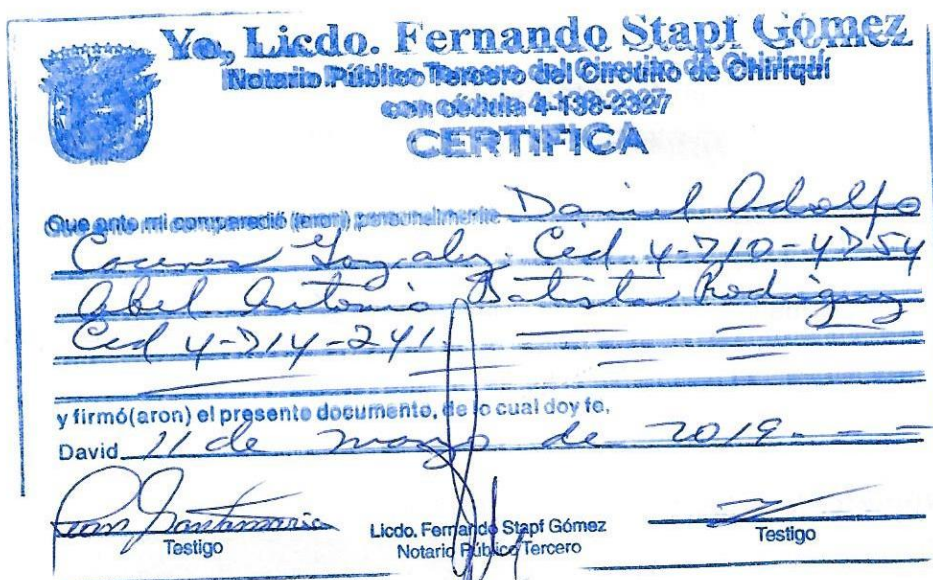 Yo, Licdo. Fernando Stapf Gómez
Notario Público Tercero del Circuito de Chiriquí
con cédula 4-138-2327
CERTIFICA
Que ante mi compareció (eron) personalmente Daniel Adolfo
Caceres Gonzalez Ced 4-710-4754
Abel Antonio Batista Rodriguez
Ced 4-714-241
y firmó(aron) el presente documento, de lo cual doy fe,
David 11 de marzo de 2019
Santamaria
Testigo
Licdo. Fernando Stapf Gómez
Notario Público Tercero
Testigo